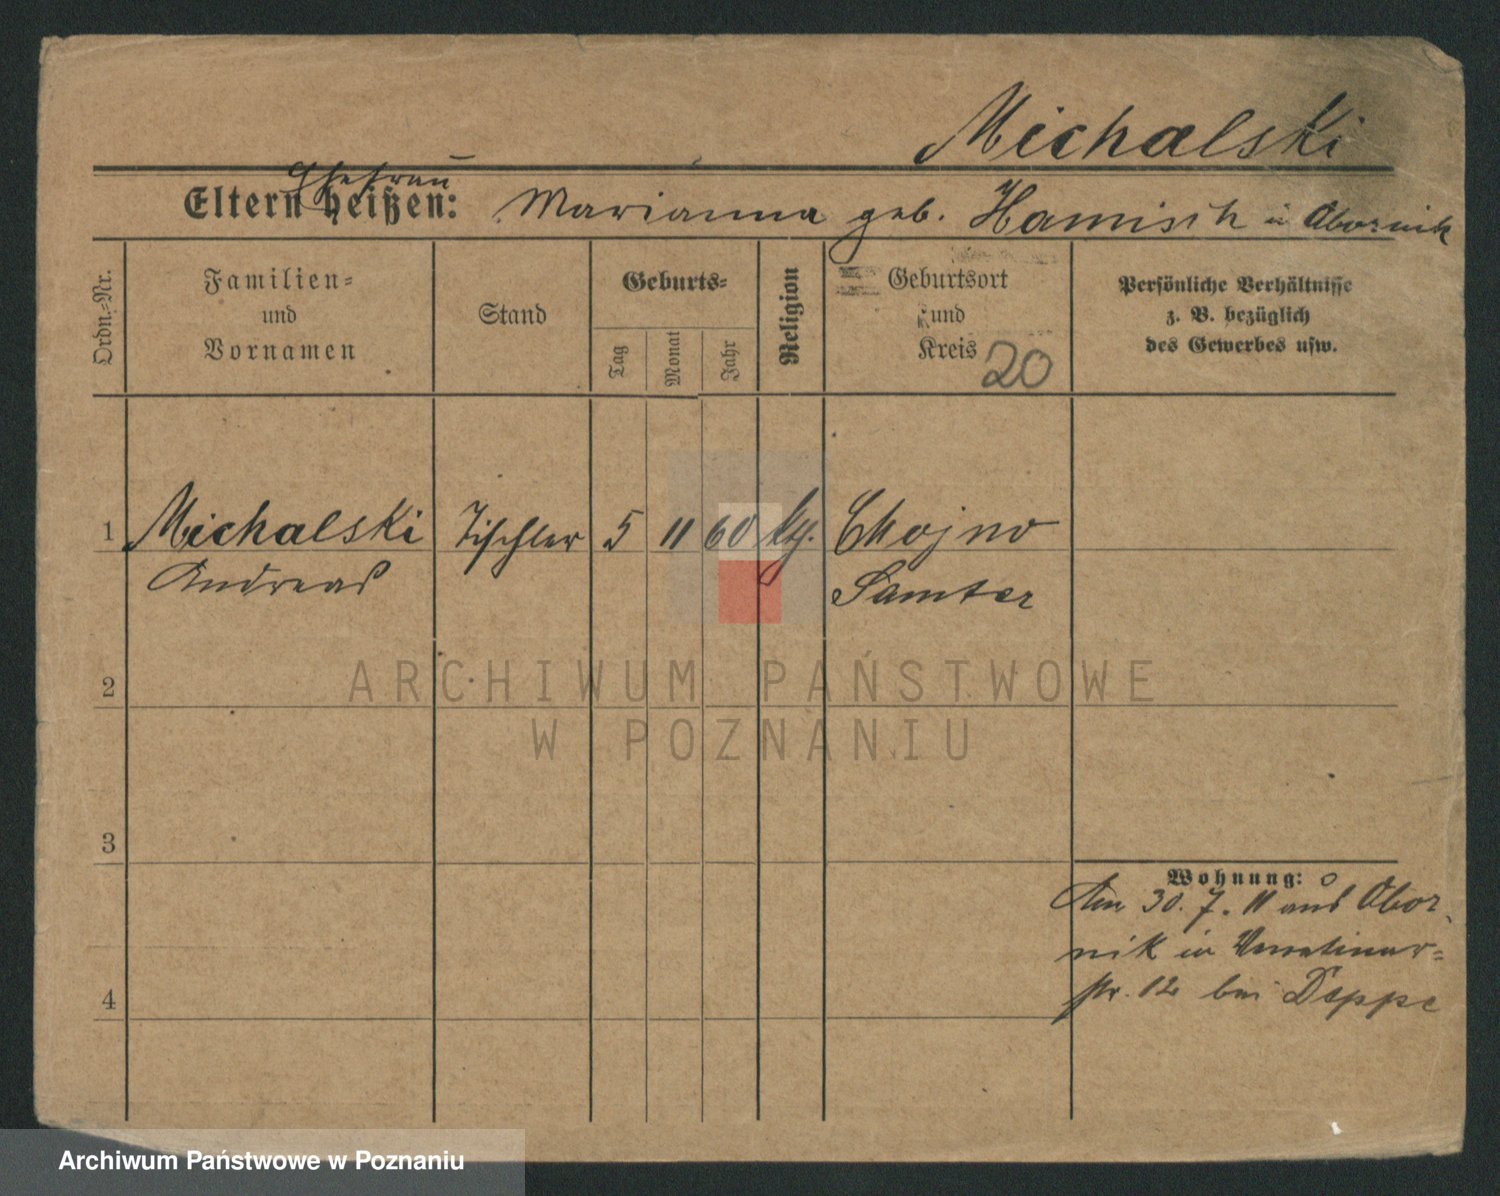 Michalski
Ehefrau
Eltern heißen: Marianna geb. Hamisch in Obornik
Ordn.=Nr.
Familien=
und
Vornamen
Stand
Geburts=
Tag
Monat
Jahr
Religion
Geburtsort
und
Kreis
20
Persönliche Verhältnisse
z. B. bezüglich
des Gewerbes usw.
1 Michalski Tischler 5 11 60 kth. Chojno
Andreas Samter
2
3
4
Wohnung:
Am 30. 7. 11 aus Obor
nik in
str. 12 bei Deppe
ARCHIWUM PAŃSTWOWE
W POZNANIU
Archiwum Państwowe w Poznaniu